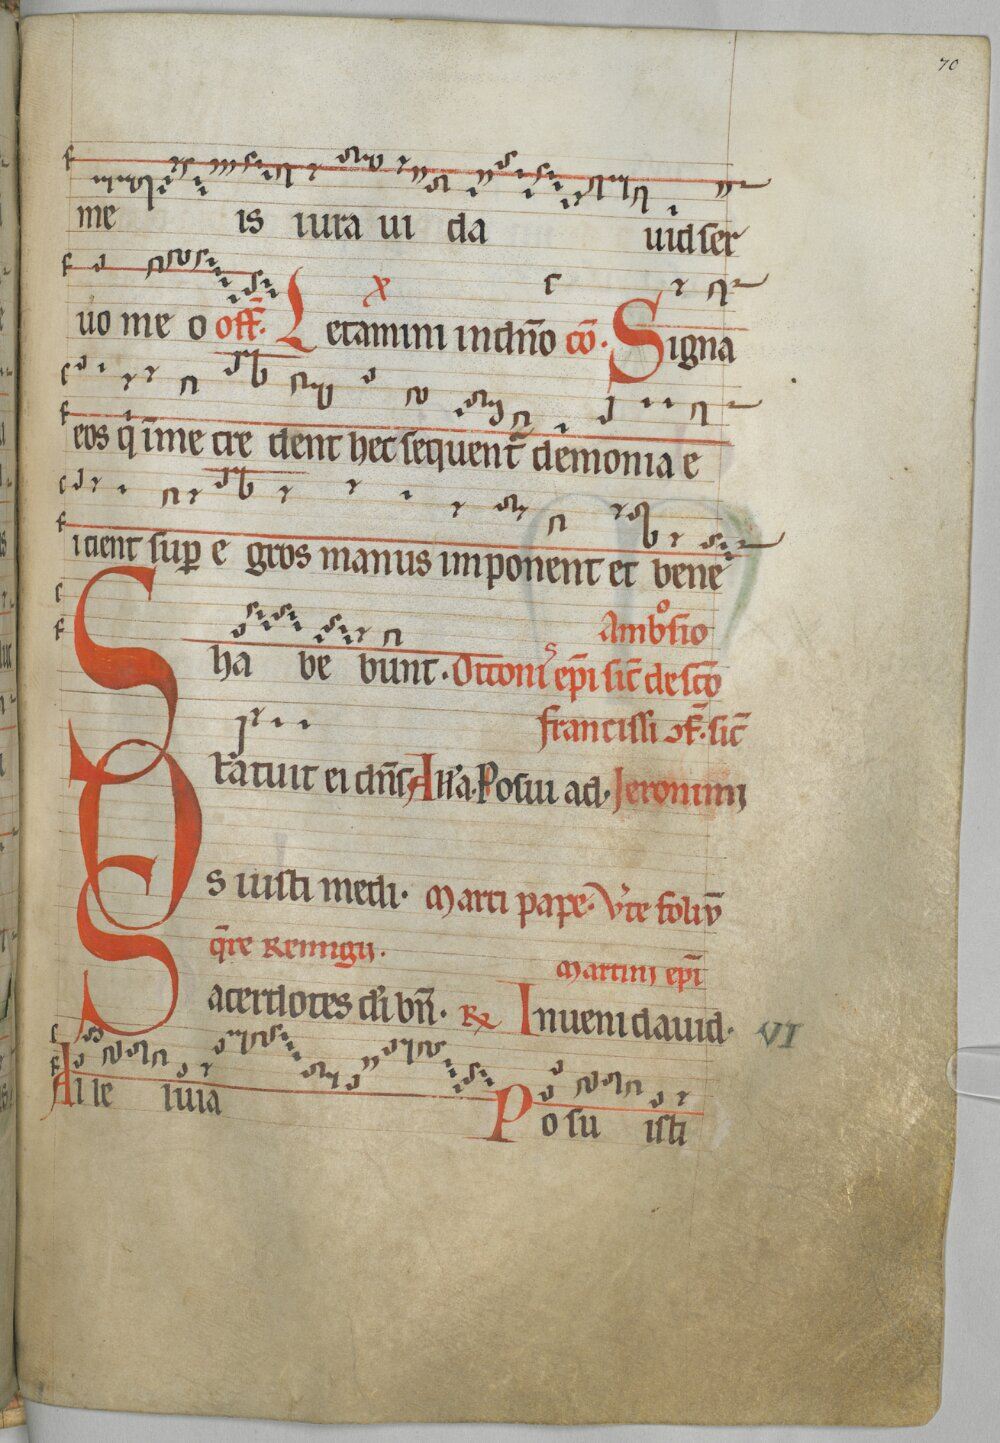 70
me is iura ui da uid ser
uo me o off̄. Letamini in dn̄o co̅. Signa
eos q̇ i̅me cre dent hec sequent̄ demonia e
icient sup̲ e gros manus imponent et bene
Ambo̊sio
ha be bunt. Ottonis ep̄i sic̄ de sc̄o
francissi of̄. sic̄
Statuit ei dn̄s All'a. Posui ad. Jeronimi
Os iusti medi. Marci pape. Vt̓e foliu̅
q̄re Remigij.
Martini ep̄i
Sacerdotes di̅ bn̄. R̷ Inueni dauid. VI
Al le luia Posu isti